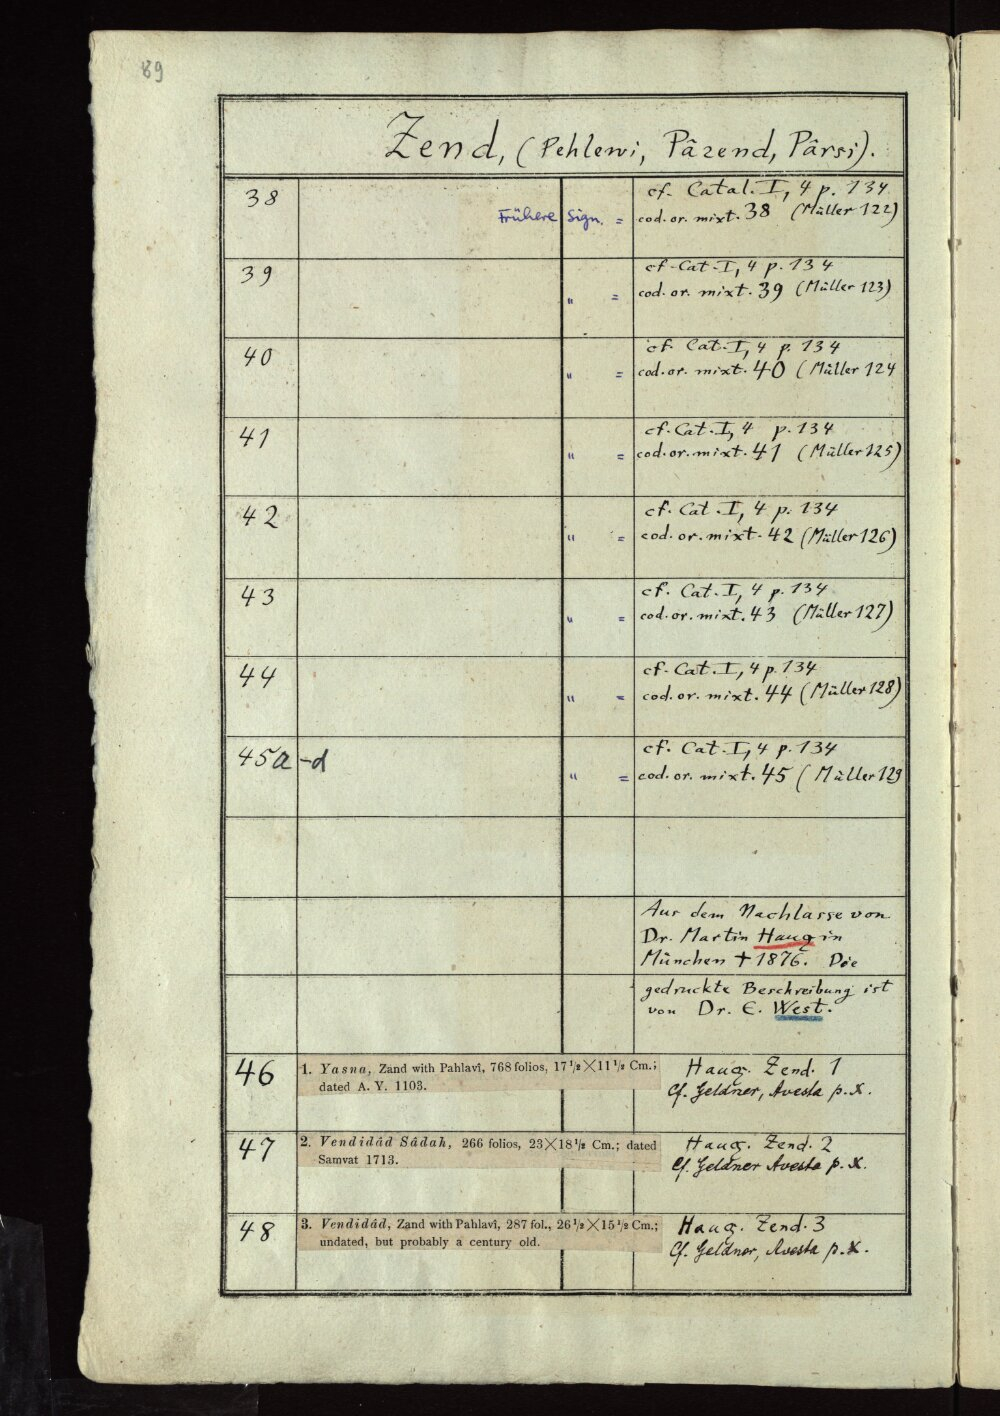 89
Zend, (Pehlewi, Pâzend, Pârsi).
38 cf. Catal. I, 4 p. 134
Frühere Sign. = cod. or. mixt. 38 (Müller 122)
39 cf. Cat. I, 4 p. 134
" = cod. or. mixt. 39 (Müller 123)
40 cf. Cat. I, 4 p. 134
" = cod. or. mixt. 40 (Müller 124
41 cf. Cat. I, 4 p. 134
" = cod. or. mixt. 41 (Müller 125)
42 cf. Cat. I, 4 p. 134
" = cod. or. mixt. 42 (Müller 126)
43 cf. Cat. I, 4 p. 134
" = cod. or. mixt. 43 (Müller 127)
44 cf. Cat. I, 4 p. 134
" = cod. or. mixt. 44 (Müller 128)
45a-d cf. Cat. I, 4 p. 134
" = cod. or. mixt. 45 (Müller 129
Aus dem Nachlasse von
Dr. Martin Haug in
München † 1876. Die
gedruckte Beschreibung ist
von Dr. E. West.
46 1. Yasna, Zand with Pahlavî, 768 folios, 17 1/2 × 11 1/2 Cm.; Haug. Zend. 1
dated A. Y. 1103. Cf. Geldner, Avesta p. X.
47 2. Vendidâd Sâdah, 266 folios, 23 × 18 1/2 Cm.; dated Haug. Zend. 2
Samvat 1713. Cf. Geldner Avesta p. X.
48 3. Vendidâd, Zand with Pahlavî, 287 fol., 26 1/2 × 15 1/2 Cm.; Haug. Zend. 3
undated, but probably a century old. Cf. Geldner, Avesta p. X.